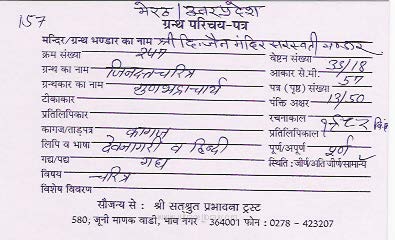 157
मेरठ / उत्तरप्रदेश
ग्रन्थ परिचय-पत्र
मन्दिर/ग्रन्थ भण्डार का नाम श्री दि. जैन मंदिर सरस्वती भण्डार
क्रम संख्या 247 वेष्टन संख्या 33/18
ग्रन्थ का नाम जिनदत्तचरित्र आकार से.मी.
ग्रन्थकार का नाम गुणभद्राचार्य पत्र (पृष्ठ) संख्या 57
टीकाकार पंक्ति अक्षर 13/50
प्रतिलिपिकार रचनाकाल
कागज/ताड़पत्र कागज प्रतिलिपिकाल
लिपि व भाषा देवनागरी व हिन्दी पूर्ण/अपूर्ण पूर्ण
गद्य/पद्य गद्य स्थिति : जीर्ण/अति जीर्ण/सामान्य
विषय चरित्र
विशेष विवरण
सौजन्य से : श्री सतश्रुत प्रभावना ट्रस्ट
580, जूनी माणक वाडी, भाव नगर - 364001 फोन : 0278 - 423207